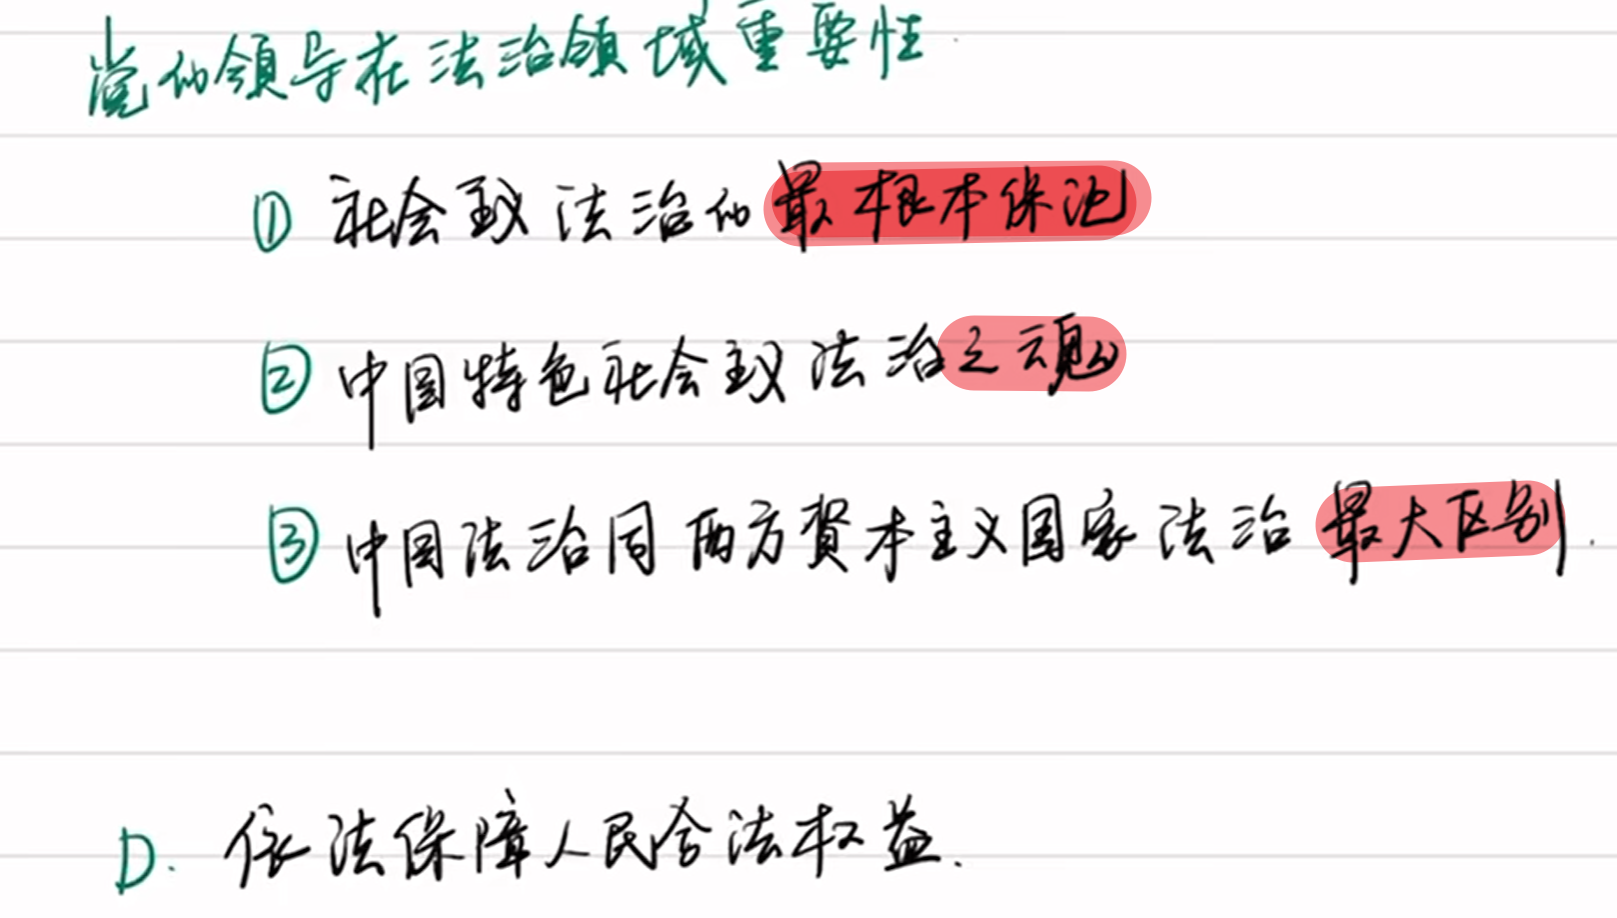 党的领导在法治领域重要性
① 社会主义法治的最根本保证
② 中国特色社会主义法治之魂
③ 中国法治同西方资本主义国家法治最大区别.
D. 依法保障人民合法权益.